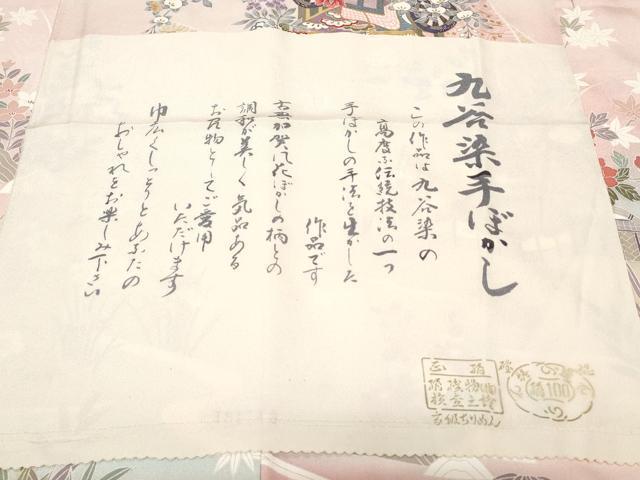 九谷染手ぼかし
この作品は九谷染の
高度な伝統技法の一つ
手ぼかしの手法を生かした
作品です
古典加賀友花ぼかしの柄との
調和が美しく気品ある
お反物としてご愛用
いただけます
巾広くしっとりとあなたの
おしゃれをお楽しみ下さい
正絹
高級ちりめん
絹100